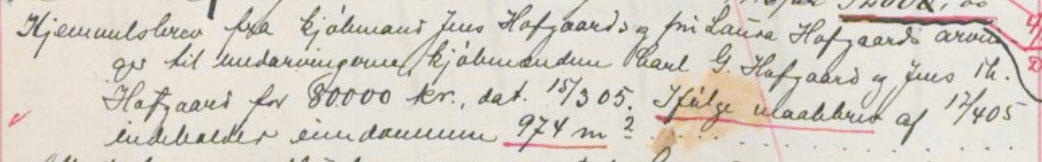 12000,00
Hjemmelsbrev fra kjøbmand Jens Hofgaards og fru Laura Hofgaards arvin
ger til medarvingerne, kjøbmændene Carl G. Hofgaard og Jens Th.
Hofgaard for 80000 kr., dat. 15/3 05. Ifølge maalebrev af 12/4 05
indeholder eiendommen 974 m²